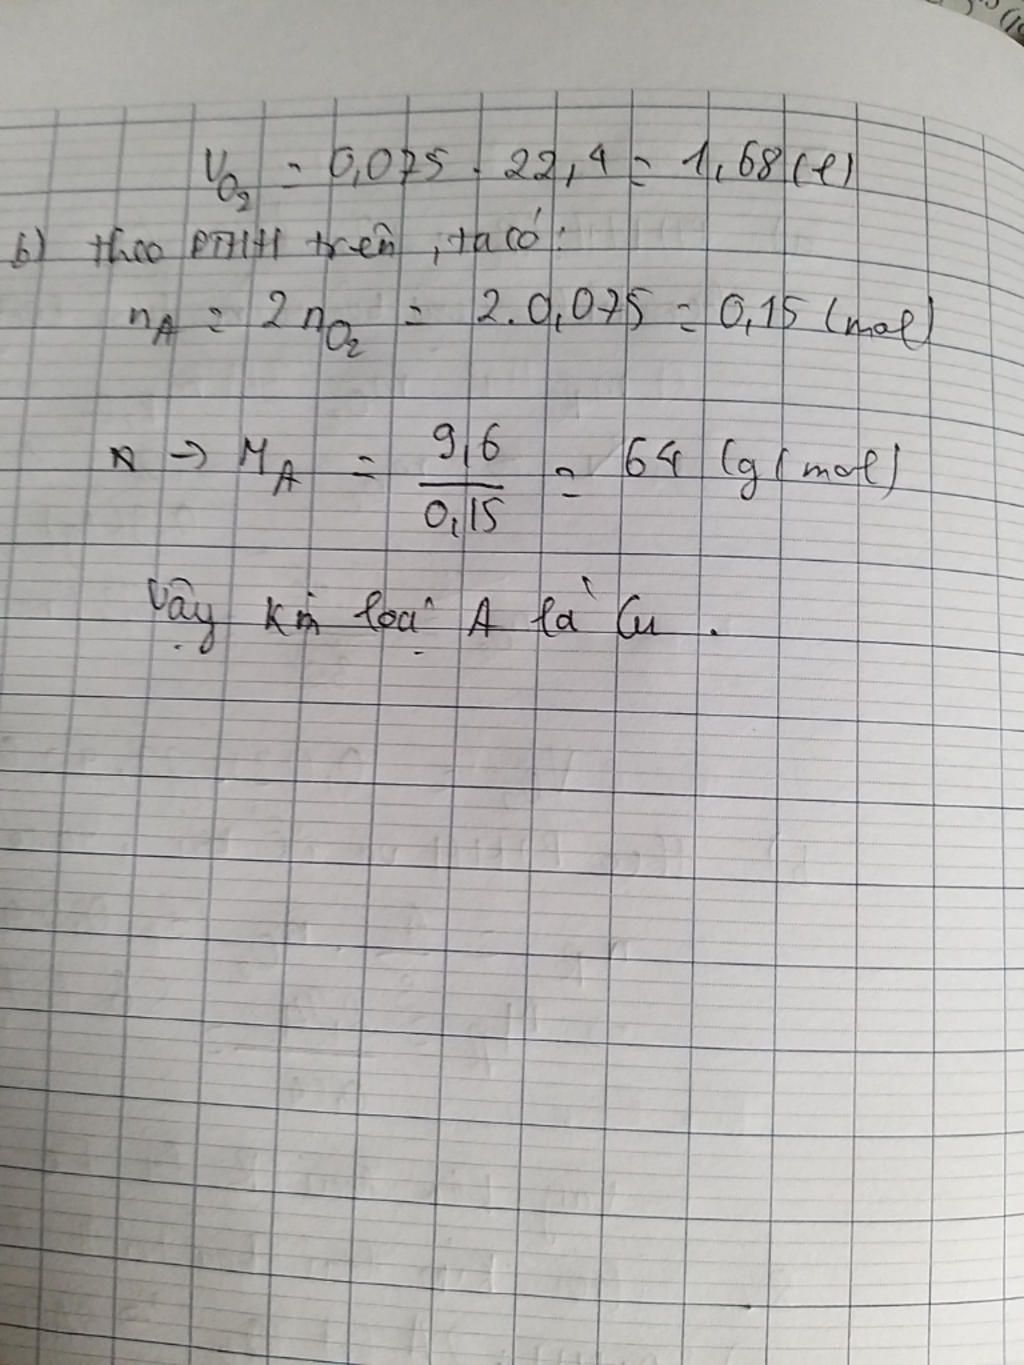 V_O₂ = 0,075 . 22,4 = 1,68 (l)
b) theo PTHH trên, ta có:
n_A = 2 n_O₂ = 2. 0,075 = 0,15 (mol)
→ M_A = 9,6 / 0,15 = 64 (g/mol)
Vậy kim loại A là Cu .